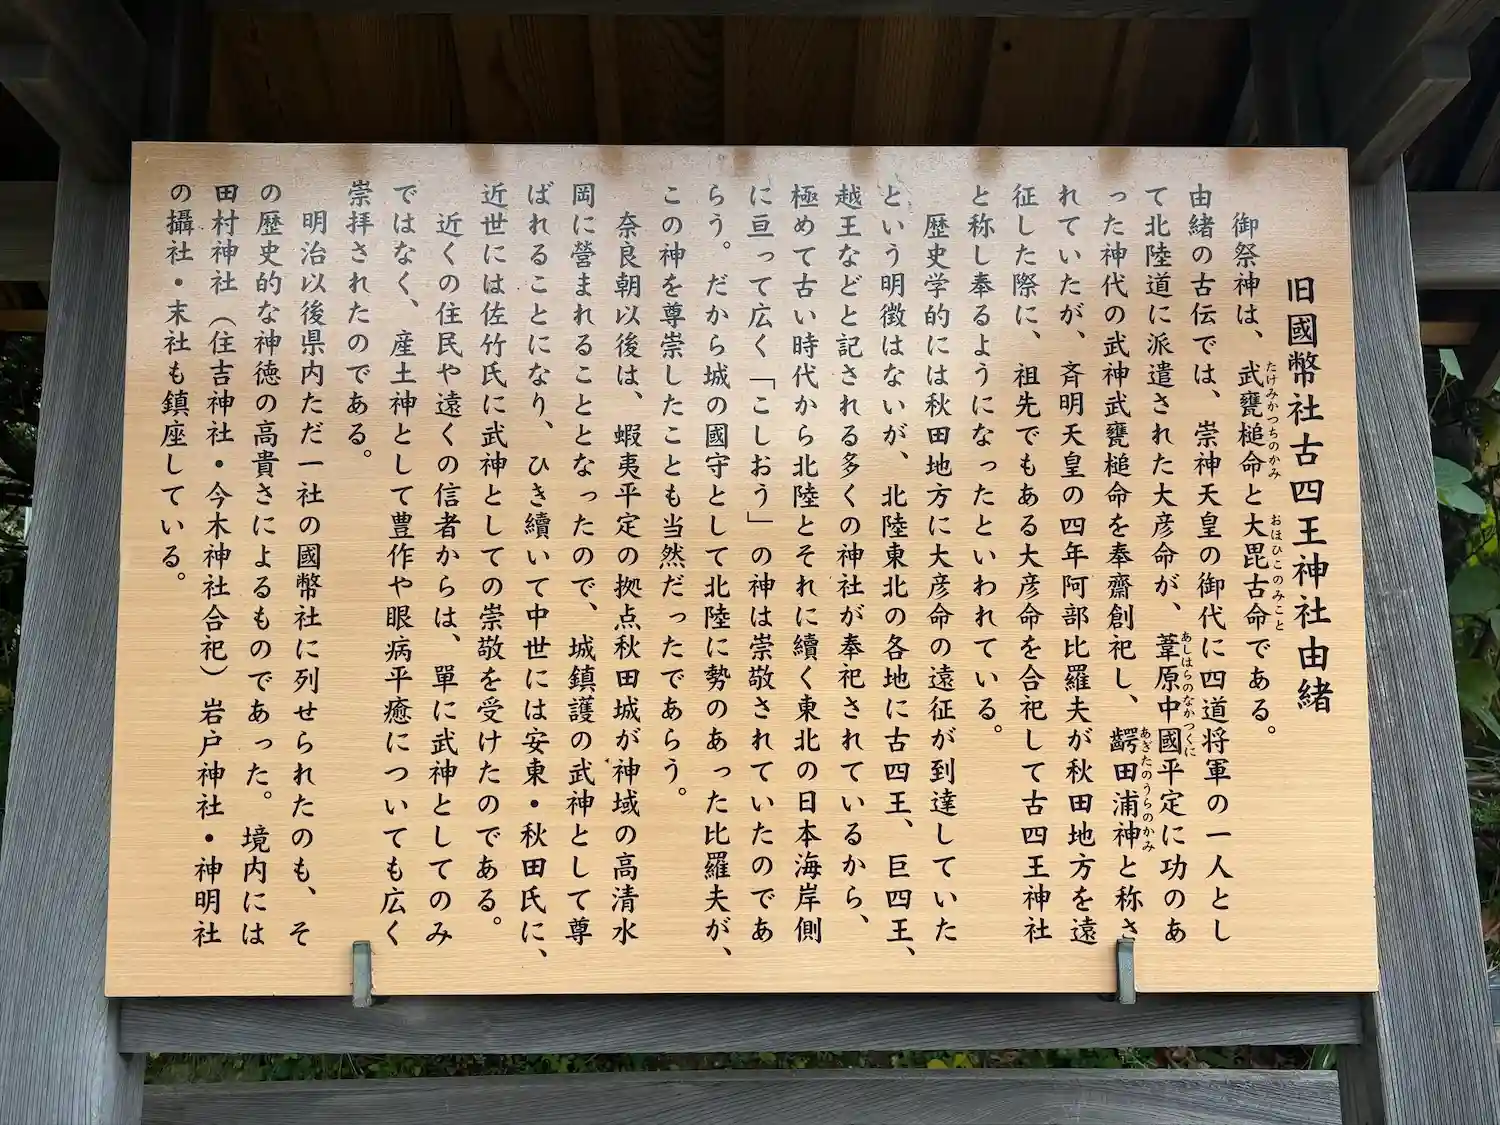 旧國幣社古四王神社由緒
御祭神は、武甕槌命と大毘古命である。
たけみかつちのかみ
おほひこのみこと
由緒の古伝では、崇神天皇の御代に四道将軍の一人とし
て北陸道に派遣された大彦命が、葦原中國平定に功のあ
あしはらのなかつくに
った神代の武神武甕槌命を奉齋創祀し、齶田浦神と称さ
あぎたのうらのかみ
れていたが、斉明天皇の四年阿部比羅夫が秋田地方を遠
征した際に、祖先でもある大彦命を合祀して古四王神社
と称し奉るようになったといわれている。
歴史学的には秋田地方に大彦命の遠征が到達していた
という明徴はないが、北陸東北の各地に古四王、巨四王、
越王などと記される多くの神社が奉祀されているから、
極めて古い時代から北陸とそれに續く東北の日本海岸側
に亘って広く「こしおう」の神は崇敬されていたのであ
らう。だから城の國守として北陸に勢のあった比羅夫が、
この神を尊崇したことも当然だったであらう。
奈良朝以後は、蝦夷平定の拠点秋田城が神域の高清水
岡に営まれることとなったので、城鎮護の武神として尊
ばれることになり、ひき續いて中世には安東・秋田氏に、
近世には佐竹氏に武神としての崇敬を受けたのである。
近くの住民や遠くの信者からは、單に武神としてのみ
ではなく、産土神として豊作や眼病平癒についても広く
崇拝されたのである。
明治以後県内ただ一社の國幣社に列せられたのも、そ
の歴史的な神徳の高貴さによるものであった。境内には
田村神社（住吉神社・今木神社合祀）岩戸神社・神明社
の攝社・末社も鎮座している。